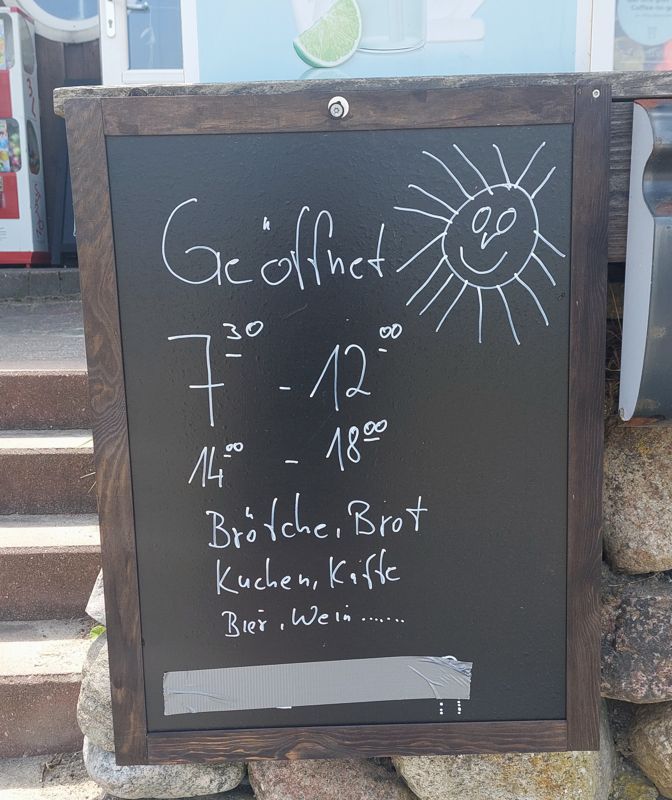 Geöffnet
7 30 - 12 00
14 00 - 18 00
Brötche, Brot
Kuchen, Kaffe
Bier, Wein ......